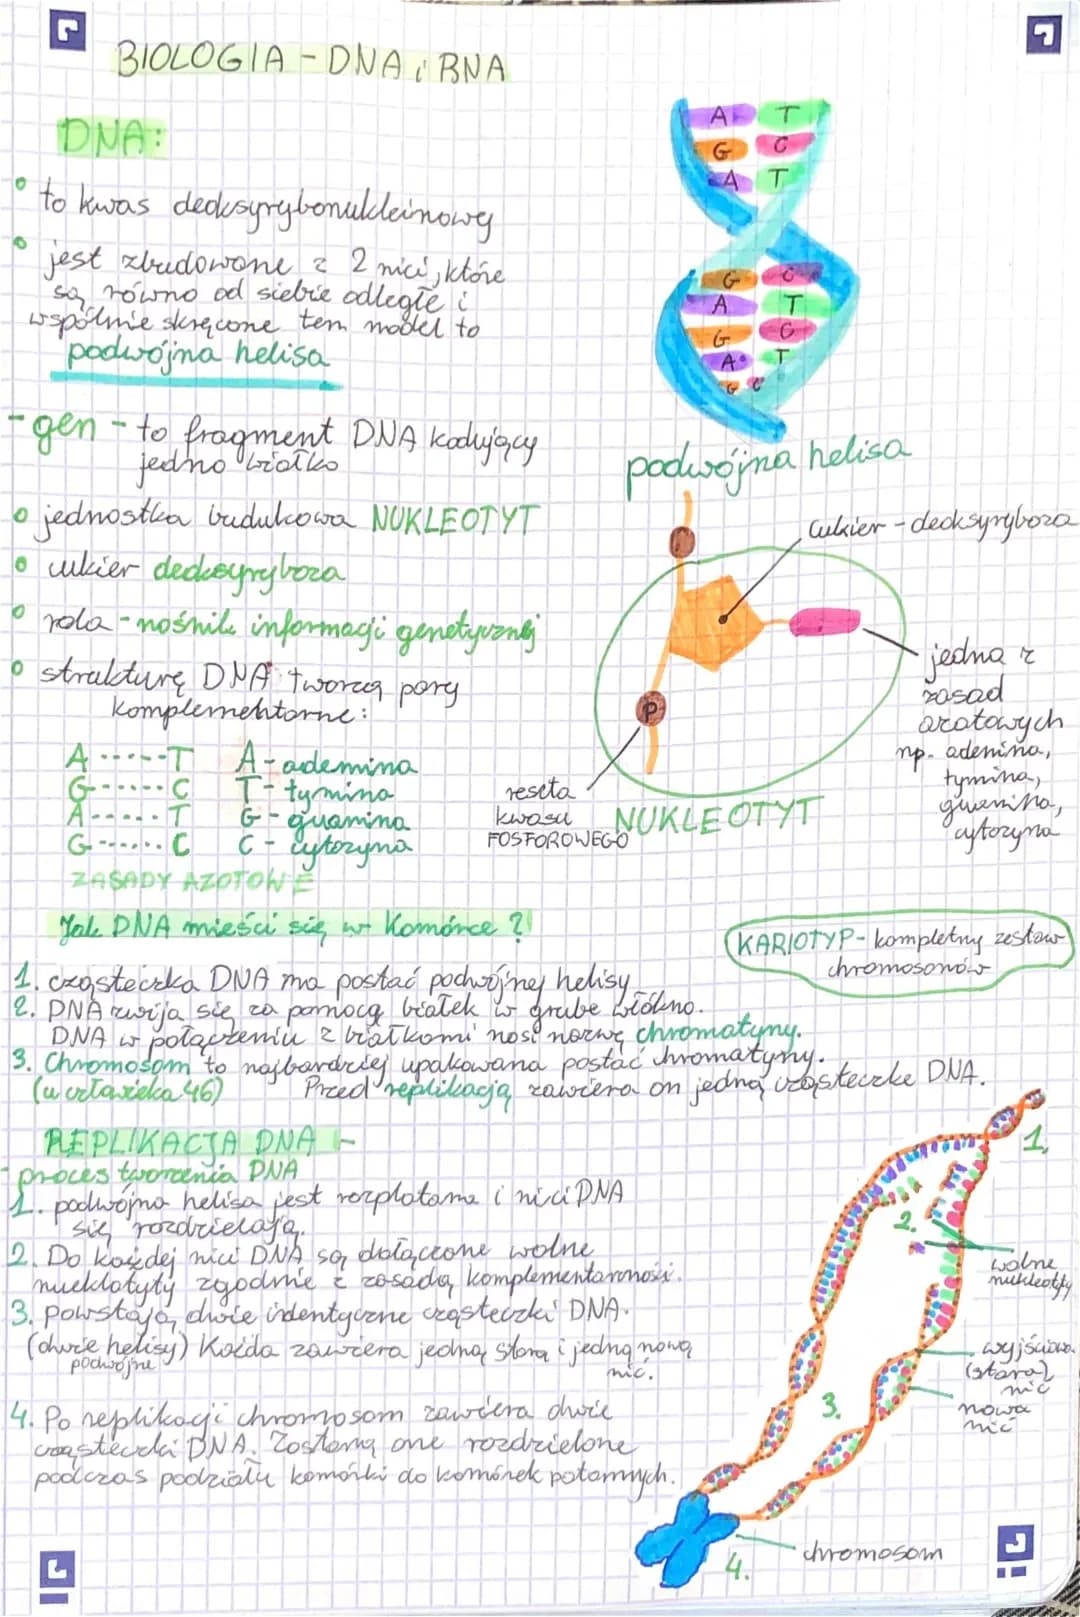 BIOLOGIA - DNA i RNA
DNA:
• to kwas deoksyrybonukleinowy
• jest zbudowane z 2 nici, które
są równo od siebie odległe i
wspólnie skręcone tem model to
podwójna helisa
- gen - to fragment DNA kodujący
jedno białko
• jednostka budulcowa NUKLEOTYT
• cukier deoksyryboza
• rola - nośnik informacji genetycznej
• strukturę DNA tworzą pary
komplementarne:
A ------ T A - adenina
G ------ C T - tymina
A ------ T G - guanina
G ------ C C - cytozyna
ZASADY AZOTOWE
A T
G C
A T
G C
A T
G C
A T
G C
podwójna helisa
cukier - deoksyryboza
P
jedna z
zasad
azotowych
np. adenina,
tymina,
guanina,
cytozyna
reszta
kwasu
FOSFOROWEGO
NUKLEOTYT
Jak DNA mieści się w komórce?
KARIOTYP - kompletny zestaw
chromosonów
1. cząsteczka DNA ma postać podwójnej helisy
2. DNA zwija się za pomocą białek w grube włókno.
DNA w połączeniu z białkami nosi nazwę chromatyny.
3. Chromosom to najbardziej upakowana postać chromatyny.
(u człowieka 46) Przed replikacją zawiera on jedną cząsteczkę DNA.
REPLIKACJA DNA -
- proces tworzenia DNA
1. podwójna helisa jest rozplatana i nici DNA
się rozdzielają.
2. Do każdej nici DNA są dołączone wolne
nuklotyty zgodnie z zasadą komplementarności.
3. Powstają dwie identyczne cząsteczki DNA.
(dwie helisy) Każda zawiera jedną starą i jedną nową
podwójne nić.
4. Po replikacji chromosom zawiera dwie
cząsteczki DNA. Zostaną one rozdzielone
podczas podziału komórki do komórek potomnych.
1.
2.
wolne
nukleotyty
wyjściowa
(stara)
nić
3.
nowa
nić
chromosom
4.